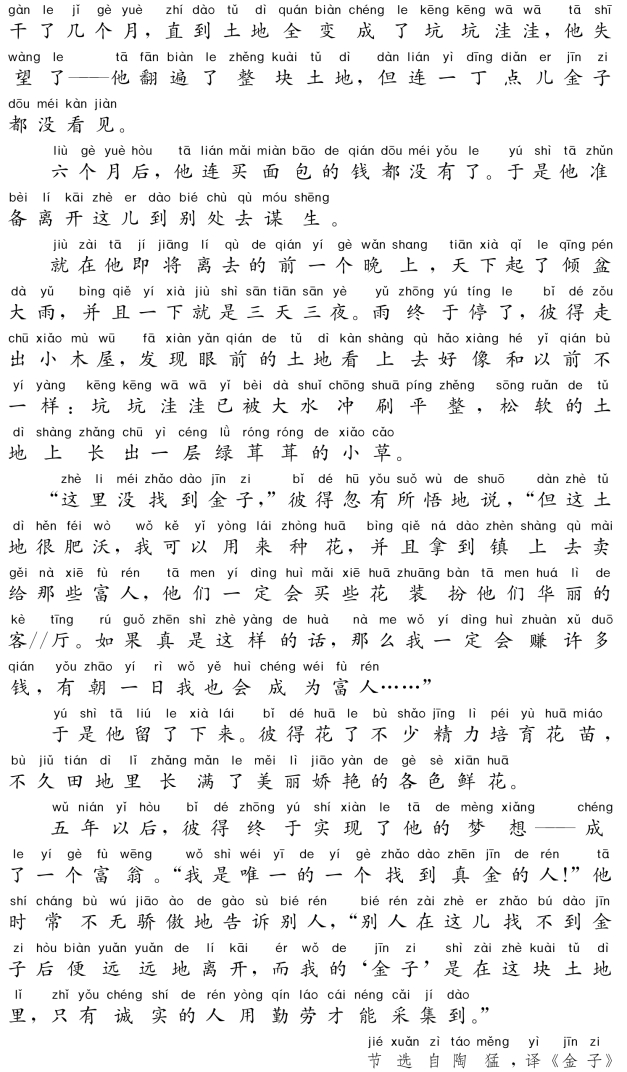 gàn le jǐ gè yuè zhí dào tǔ dì quán biàn chéng le kēng kēng wā wā tā shī
干了几个月，直到土地全变成了坑坑洼洼，他失
wàng le tā fān biàn le zhěng kuài tǔ dì dàn lián yì dīng diǎn er jīn zi
望了——他翻遍了整块土地，但连一丁点儿金子
dōu méi kàn jiàn
都没看见。
liù gè yuè hòu tā lián mǎi miàn bāo de qián dōu méi yǒu le yú shì tā zhǔn
六个月后，他连买面包的钱都没有了。于是他准
bèi lí kāi zhè er dào bié chù qù móu shēng
备离开这儿到别处去谋生。
jiù zài tā jí jiāng lí qù de qián yí gè wǎn shang tiān xià qǐ le qīng pén
就在他即将离去的前一个晚上，天下起了倾盆
dà yǔ bìng qiě yí xià jiù shì sān tiān sān yè yǔ zhōng yú tíng le bǐ dé zǒu
大雨，并且一下就是三天三夜。雨终于停了，彼得走
chū xiǎo mù wū fā xiàn yǎn qián de tǔ dì kàn shàng qù hǎo xiàng hé yǐ qián bù
出小木屋，发现眼前的土地看上去好像和以前不
yí yàng kēng kēng wā wā yǐ bèi dà shuǐ chōng shuā píng zhěng sōng ruǎn de tǔ
一样：坑坑洼洼已被大水冲刷平整，松软的土
dì shàng zhǎng chū yì céng lǜ róng róng de xiǎo cǎo
地上长出一层绿茸茸的小草。
zhè li méi zhǎo dào jīn zi bǐ dé hū yǒu suǒ wù de shuō dàn zhè tǔ
“这里没找到金子，”彼得忽有所悟地说，“但这土
dì hěn féi wò wǒ kě yǐ yòng lái zhòng huā bìng qiě ná dào zhèn shàng qù mài
地很肥沃，我可以用来种花，并且拿到镇上去卖
gěi nà xiē fù rén tā men yí dìng huì mǎi xiē huā zhuāng bàn tā men huá lì de
给那些富人，他们一定会买些花装扮他们华丽的
kè tīng rú guǒ zhēn shì zhè yàng de huà nà me wǒ yí dìng huì zhuàn xǔ duō
客//厅。如果真是这样的话，那么我一定会赚许多
qián yǒu zhāo yí rì wǒ yě huì chéng wéi fù rén
钱，有朝一日我也会成为富人……”
yú shì tā liú le xià lái bǐ dé huā le bù shǎo jīng lì péi yù huā miáo
于是他留了下来。彼得花了不少精力培育花苗，
bù jiǔ tián dì lǐ zhǎng mǎn le měi lì jiāo yàn de gè sè xiān huā
不久田地里长满了美丽娇艳的各色鲜花。
wǔ nián yǐ hòu bǐ dé zhōng yú shí xiàn le tā de mèng xiǎng chéng
五年以后，彼得终于实现了他的梦想——成
le yí gè fù wēng wǒ shì wéi yī de yí gè zhǎo dào zhēn jīn de rén tā
了一个富翁。“我是唯一的一个找到真金的人！”他
shí cháng bù wú jiāo ào de gào sù bié rén bié rén zài zhè er zhǎo bú dào jīn
时常不无骄傲地告诉别人，“别人在这儿找不到金
zi hòu biàn yuǎn yuǎn de lí kāi ér wǒ de jīn zi shì zài zhè kuài tǔ dì
子后便远远地离开，而我的‘金子’是在这块土地
lǐ zhǐ yǒu chéng shí de rén yòng qín láo cái néng cǎi jí dào
里，只有诚实的人用勤劳才能采集到。”
jié xuǎn zì táo měng yì jīn zi
节选自陶猛，译《金子》